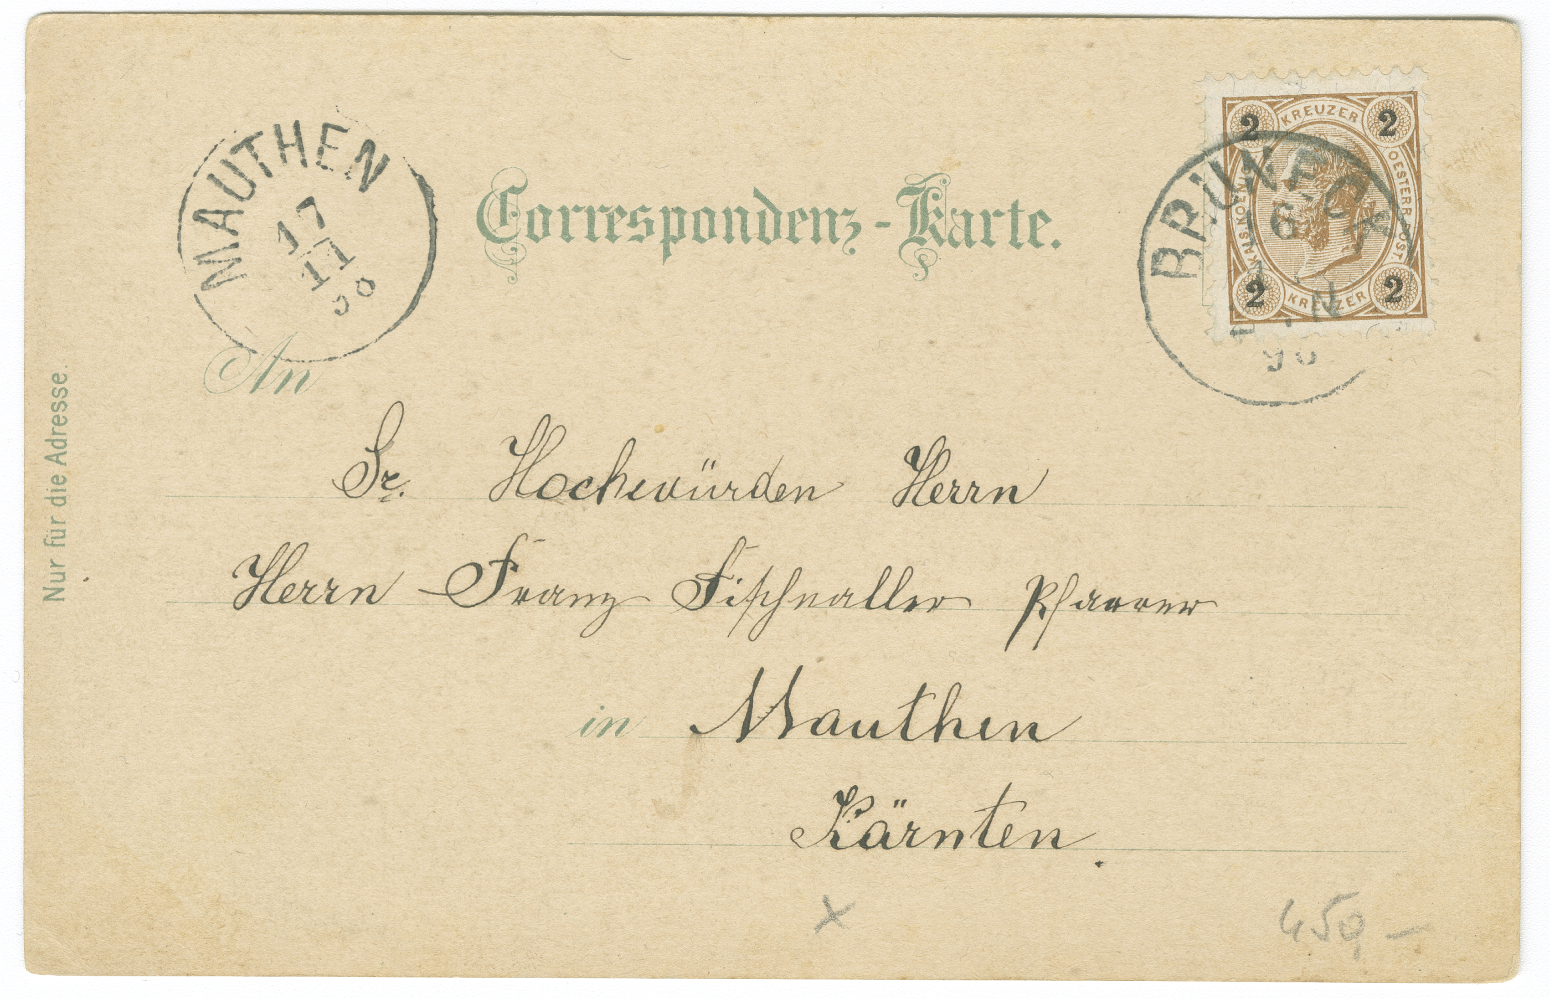 MAUTHEN
17
11
98
Correspondenz-Karte.
2 KREUZER 2
KAIS. KOENIGL. OESTERR. POST
2 KREUZER 2
BRUNECK
98
An
Nur für die Adresse.
Sr. Hochwürden Herrn
Herrn Franz Fischnaller Pfarrer
in Mauthen
Kärnten.
x
450 —